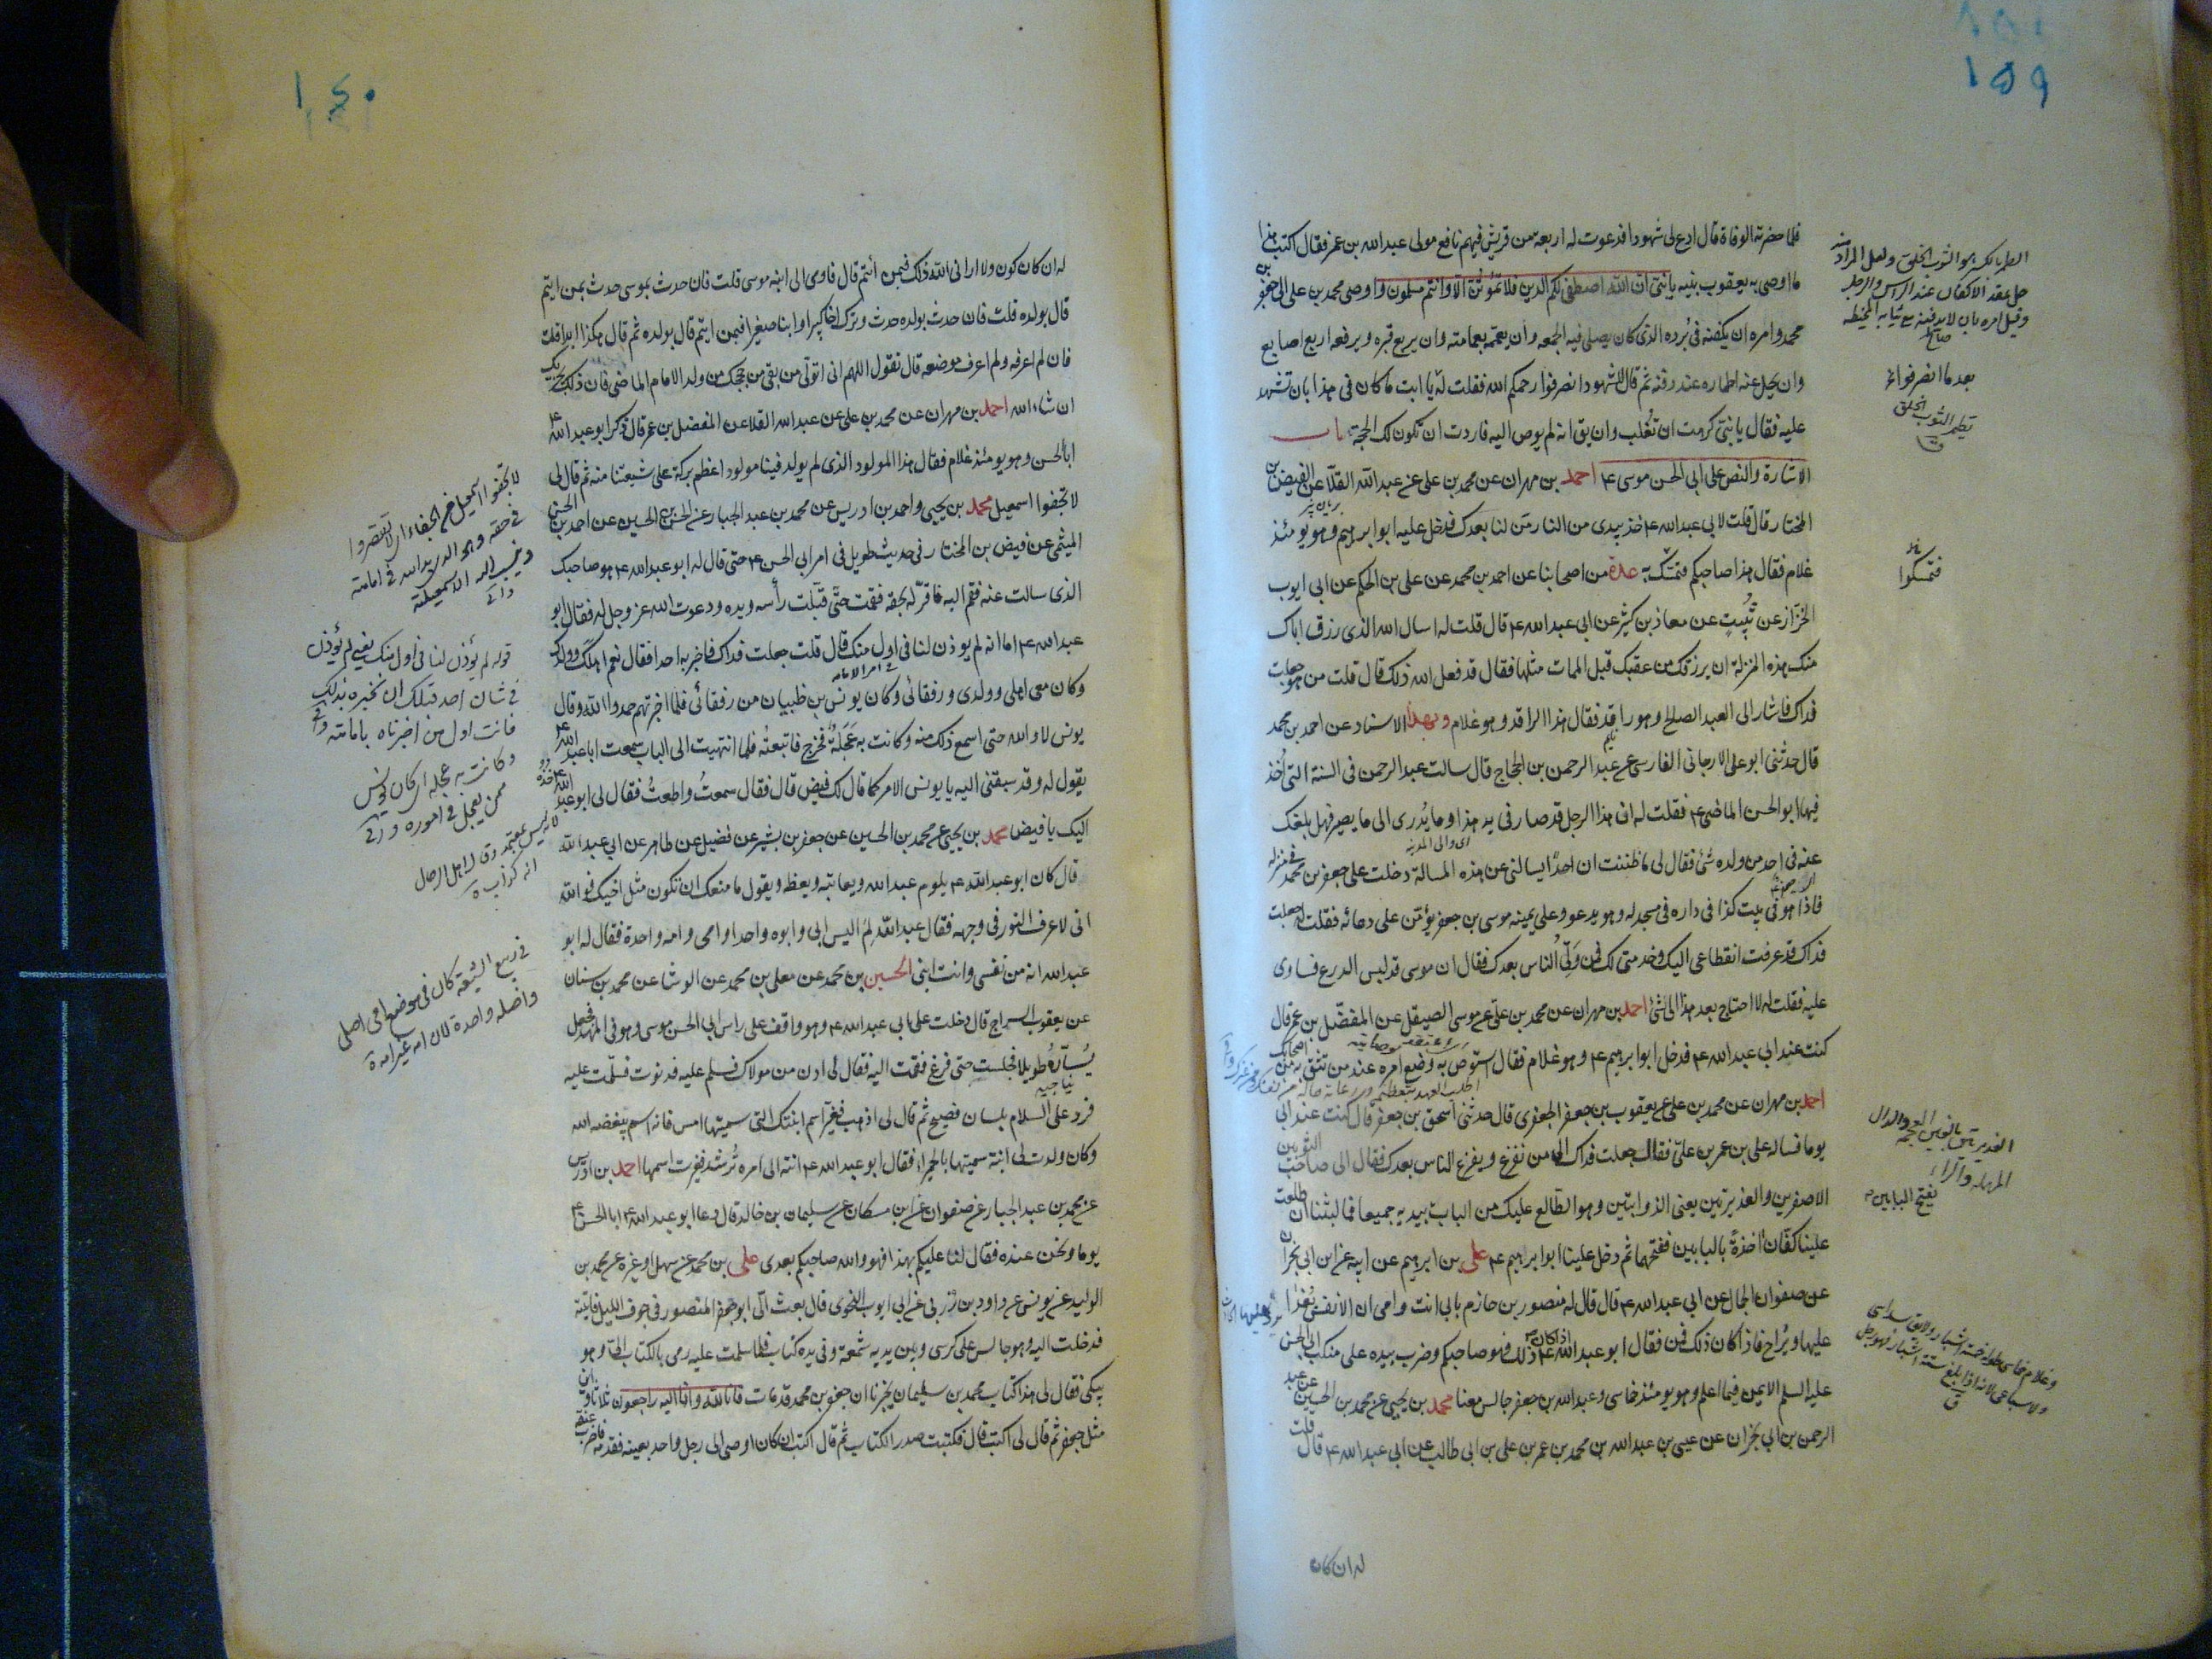 ١٥٩
فلما حضرته الوفاة قال ادع لى شهودا فدعوت له اربعة من قريش فيهم نافع مولى عبدالله بن عمر فقال اكتب هذا
ما اوصى به يعقوب بنيه يا بنىّ ان الله اصطفى لكم الدين فلا تموتنّ الا وانتم مسلمون واوصى محمد بن على الى جعفر بن
محمد وامره ان يكفنه فى برده الذى كان يصلى فيه الجمعه وان يعممه بعمامته وان يربع قبره ويرفعه اربع اصابع
وان يحل عنه اطماره عند دفنه ثم قال للشهود انصرفوا رحمكم الله فقلت له يا ابت ما كان فى هذا بان تشهد
عليه فقال يا بنىّ كرهت ان تُغلب وان يق انه لم يوص اليه فاردت ان تكون لك الحجة باب
الاشارة والنص على ابى الحسن موسى ع احمد بن مهران عن محمد بن على عن عبد الله القلّا عن الفيض بن
المختار قال قلت لابى عبدالله ع خذ بيدى من النار مَن لنا بعدك فدخل عليه ابو ابرهيم وهو يومئذ
غلام فقال هذا صاحبكم فتمسّك به عدة من اصحابنا عن احمد بن محمد عن على بن الحكم عن ابى ايوب
الخزّاز عن ثُبيتٍ عن معاذ بن كثير عن ابى عبدالله ع قال قلت له اسال الله الذى رزق اباك
منك هذه المنزلة ان يرزقك من عقبك قبل الممات مثلها فقال قد فعل الله ذلك قال قلت من هو جعلت
فداك فاشار الى العبد الصالح وهو راقد فقال هذا الراقد وهو غلام وبهذا الاسناد عن احمد بن محمد
قال حدثنى ابو على الارجانى الفارسى عن عبد الرحمن بن الحجاج قال سالت عبد الرحمن فى السنة التى أُخذ
فيها ابو الحسن الماضى ع فقلت له ان هذا الرجل قد صار فى يد هذا وما يُدرى الى ما يصير فهل بلغك
عنه فى احد من ولده شئ فقال لى ما ظننت ان احدًا يسالنى عن هذه المسالة دخلت على جعفر بن محمد فى منزله
فاذا هو فى بيت كذا فى داره فى مسجد له وهو يدعو وعلى يمينه موسى بن جعفر يؤمّن على دعائه فقلت له جعلت
فداك قد عرفت انقطاعى اليك وخدمتى لك فمن وَلىّ الناس بعدك فقال ان موسى قد لبس الدرع فساوى
عليه فقلت له لا احتاج بعد هذا الى شئ احمد بن مهران عن محمد بن على عن موسى الصيقل عن المفضّل بن عمر قال
كنت عند ابى عبدالله ع فدخل ابو ابرهيم ع وهو غلام فقال استوص به وضع امره عند من تثق به من اصحابك
احمد بن مهران عن محمد بن على عن يعقوب بن جعفر الجعفرى قال حدثنى اسحق بن جعفر قال كنت عند ابى
يوما فساله على بن عمر بن علىّ فقال جعلت فداك الى من نفزع ويفزع الناس بعدك فقال الى صاحب الثوبين
الاصفرين والغديرتين يعنى الذوابتين وهو الطالع عليك من الباب بيديه جميعا فما لبثنا ان طلعت
علينا كفّان اخذةً بالبابين ففتحهما ثم دخل علينا ابو ابرهيم ع على بن ابرهيم عن ابيه عن ابن ابى نجران
عن صفوان الجمال عن ابى عبدالله ع قال قال له منصور بن حازم بابى انت وامى ان الانفس يُغدا
عليها ويُراح فاذا كان ذلك فمن فقال ابو عبدالله ع اذا كان ذلك فهو صاحبكم وضرب بيده على منكب ابى الحسن
عليه السلم الايمن فيما اعلم وهو يومئذ خماسى وعبدالله بن جعفر جالس معنا محمد بن يحيى عن محمد بن الحسين عن عبد
الرحمن بن ابى نجران عن عيسى بن عبدالله بن محمد بن عمر بن على بن ابى طالب عن ابى عبدالله ع قال قلت
له ان كان
الطمر بالكسر هو الثوب الخلق ولعل المراد منه
حل عقد الاكفان عند الراس والرجل
وقيل امره بان لا يدفنه مع ثيابه المخيطه
صالح
بعد ما انصرفوا خ
يطمر الثوب الخلق
ق
فتمسكوا
الغديرتين بالغين المعجمه والدال
المهمله والراء
بفتح البابين
وغلام خماسى طوله خمسة اشبار ولا يق سداسى
ولا سباعى لانه اذا بلغ ستة اشبار فهو رجل
ق
١٤٠
له ان كان كون ولا ارانى الله ذلك فبمن ائتم قال فاومى الى ابنه موسى قلت فان حدث بموسى حدث بمن ايتم
قال بولده قلت فان حدث بولده حدث وترك اخا كبيرا وابنا صغيرا فبمن ايتم قال بولده ثم قال هكذا ابدا قلت
فان لم اعرفه ولم اعرف موضعه قال تقول اللهم انى اتولّى من بقى من حججك من ولد الامام الماضى فان ذلك يجزيك
ان شاء الله احمد بن مهران عن محمد بن على عن عبدالله القلا عن المفضل بن عمر قال ذكر ابو عبدالله ع
ابا الحسن وهو يومئذ غلام فقال هذا المولود الذى لم يولد فينا مولود اعظم بركة على شيعتنا منه ثم قال لى
لا تجفوا اسمعيل محمد بن يحيى واحمد بن ادريس عن محمد بن عبد الجبار عن الحسن بن الحسين عن احمد بن الحسن
الميثمى عن فيض بن المختار فى حديث طويل فى امر ابى الحسن ع حتى قال له ابو عبدالله ع هو صاحبك
الذى سالت عنه فقم اليه فاقرّ له بحقه فقمت حتّى قبّلت رأسه ويده ودعوت الله عز وجل له فقال ابو
عبدالله ع اما انه لم يوذن لنا فى اول منك قال قلت جعلت فداك فاخبر به احدا فقال نعم اهلك وولدك
وكان معى اهلى وولدى ورفقائى وكان يونس بن ظبيان من رفقائى فلما اخبرتهم حمدوا الله وقال
يونس لا والله حتى اسمع ذلك منه وكانت به عَجَلَةٌ فخرج فاتبعته فلما انتهيت الى الباب سمعت ابا عبد الله ع
يقول له وقد سبقنى اليه يا يونس الامر كما قال لك فيض قال فقال سمعتُ واطعتُ فقال لى ابو عبد الله ع خذه
اليك يا فيض محمد بن يحيى عن محمد بن الحسين عن جعفر بن بشير عن فضيل عن طاهر عن ابى عبد الله
قال كان ابو عبدالله ع يلوم عبدالله ويعاتبه ويعظه ويقول ما منعك ان تكون مثل اخيك فو الله
انى لاعرف النور فى وجهه فقال عبدالله لِمَ اليس ابى وابوه واحدا وامى وامه واحدة فقال له ابو
عبدالله انه من نفسى وانت ابنى الحسين بن محمد عن معلى بن محمد عن الوشا عن محمد بن سنان
عن يعقوب السراج قال دخلت على ابى عبدالله ع وهو واقف على راس ابى الحسن موسى وهو فى المهد فجعل
يُسارّه طويلا فجلست حتى فرغ فقمت اليه فقال لى ادن من مولاك فسلم عليه فدنوت فسلّمت عليه
فرد على السلام بلسان فصيح ثم قال لى اذهب فغيّر اسم ابنتك التى سميتها امس فانه اسم يبغضه الله
وكان ولدت لى ابنة سميتها بالحميراء فقال ابو عبدالله ع انته الى امره تُرشد فغيرت اسمها احمد بن ادريس
عن محمد بن عبد الجبار عن صفوان عن ابن مسكان عن سليمان بن خالد قال دعا ابو عبدالله ع ابا الحسن ع
يوما ونحن عنده فقال لنا عليكم بهذا فهو والله صاحبكم بعدى على بن محمد عن سهل او غيره عن محمد بن
الوليد عن يونس عن داود بن زربى عن ابى ايوب النحوى قال بعث الىّ ابو جعفر المنصور فى جوف الليل فاتيته
فدخلت اليه وهو جالس على كرسى وبين يديه شمعة وفى يده كتاب فلما سلمت عليه رمى بالكتاب الىّ وهو
يبكى فقال لى هذا كتاب محمد بن سليمان يخبرنا ان جعفر بن محمد قد مات فانا لله وانا اليه راجعون ثلاثا واين
مثل جعفر ثم قال لى اكتب قال فكتبت صدر الكتاب ثم قال اكتب ان كان اوصى الى رجل واحد بعينه فقدمه فاضرب عنقه
لا تجفوا اسمعيل من الجفاء اى لا تقتصروا
فى حقه
قوله لم يؤذن لنا فى اول منك يعنى لم يؤذن
فى شان احد قبلك ان نخبره بذلك
فانت اول من اخبرناه بامامته وافى
وكانت به عجله اى كان يونس
ممن يعجل فى اموره وافى
انه كذاب
فى ربيع الشيعة كان فى موضع امى اصلى
واصله واحدة لان امه غير امه